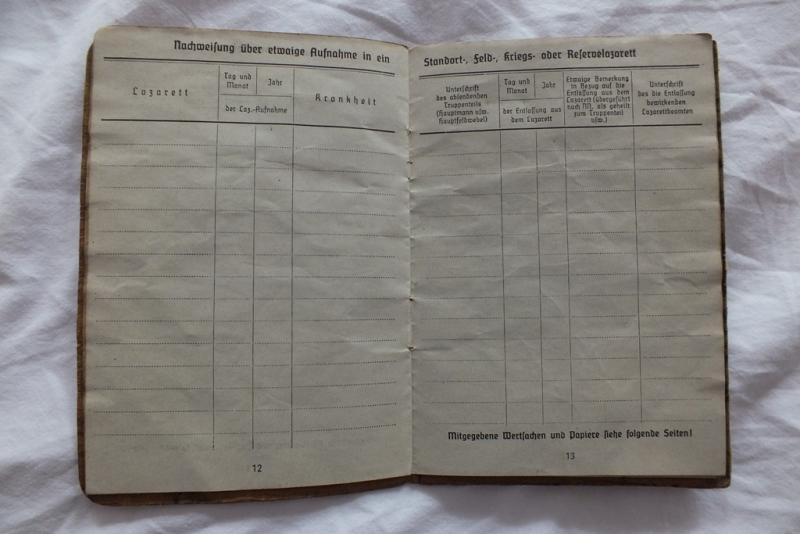 Nachweisung über etwaige Aufnahme in ein
Lazarett
Tag und
Monat
Jahr
der Laz.-Aufnahme
Krankheit
12
Standort-, Feld-, Kriegs- oder Reservelazarett
Unterschrift
des absendenden
Truppenteils
(Hauptmann usw.
Hauptfeldwebel)
Tag und
Monat
Jahr
der Entlassung aus
dem Lazarett
Etwaige Bemerkung
in Bezug auf die
Entlassung aus dem
Lazarett (übergeführt
nach NN, als geheilt
zum Truppenteil
usw.)
Unterschrift
des die Entlassung
bewirkenden
Lazarettbeamten
Mitgegebene Wertsachen und Papiere siehe folgende Seiten!
13